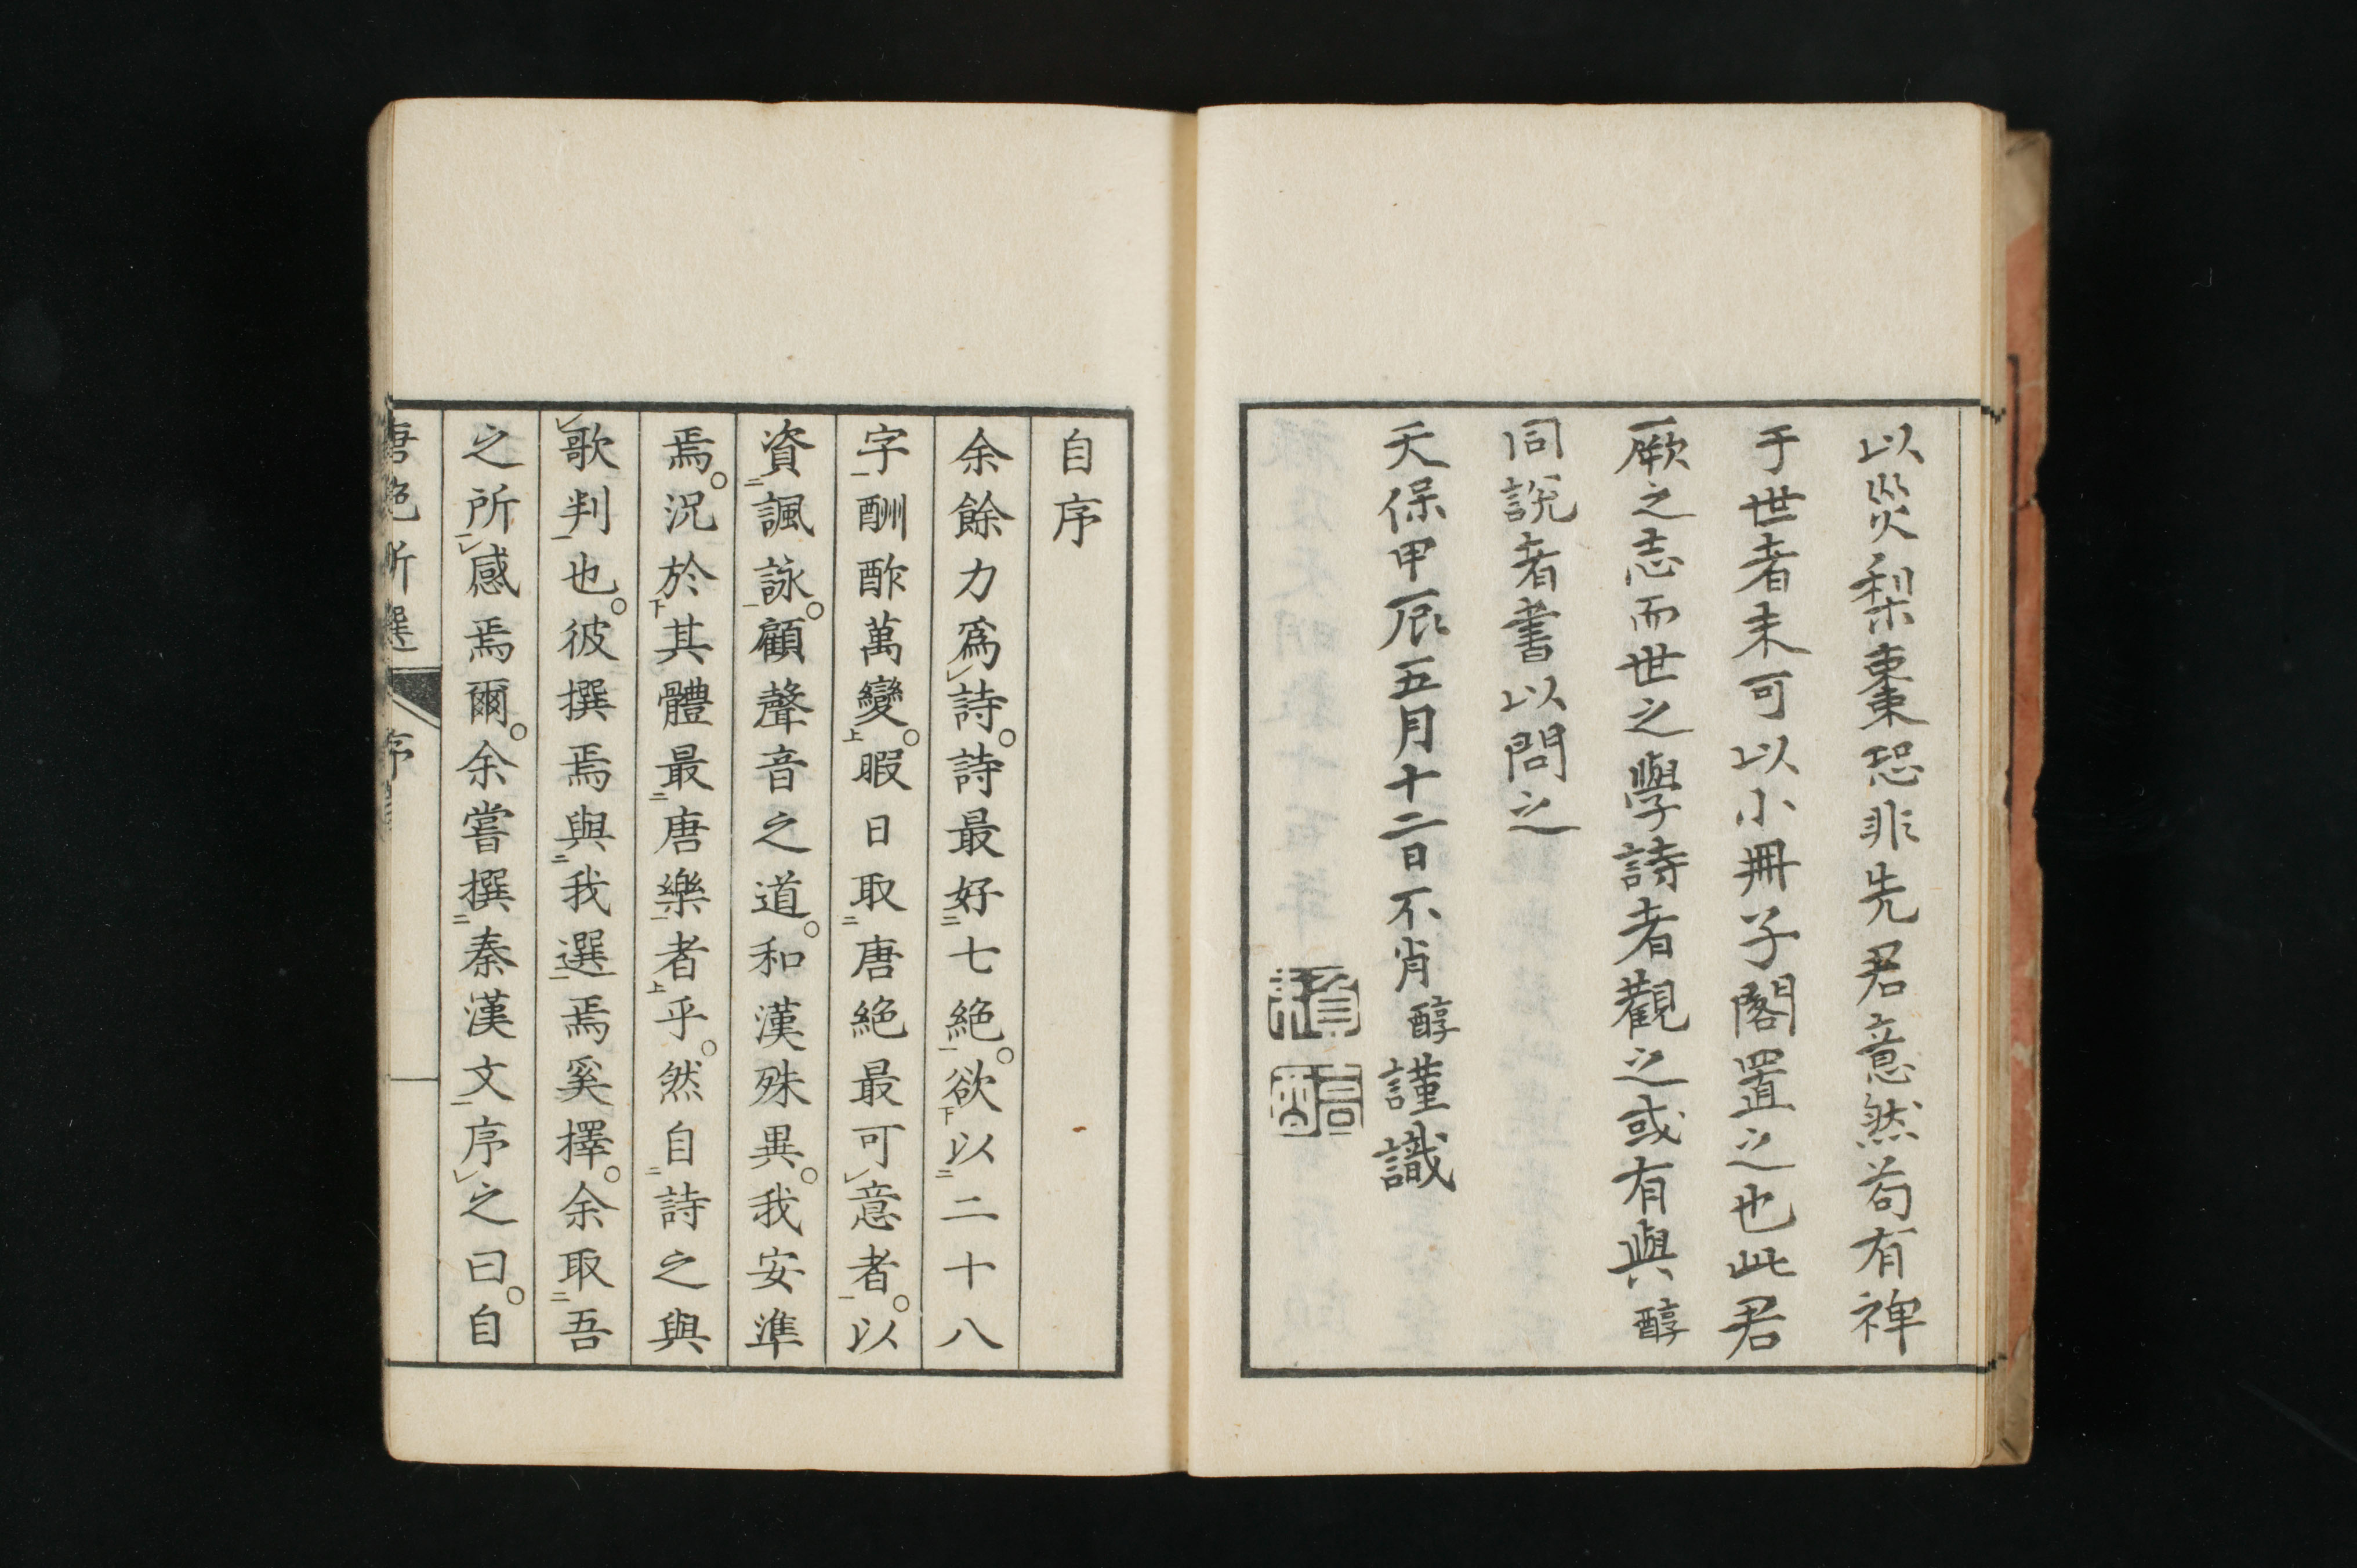 以災梨棗恐非先君意然苟有裨
于世者未可以小冊子閣置之也此君
厥之志而世之學詩者觀之或有與醇
同說者書以問之
天保甲辰五月十二日不肖醇謹識
自序
余餘力爲詩。詩最好二七絶一。欲下以二二十八
字一酬酢萬變上。暇日取二唐絶最可意者一。以
資二諷詠一。顧聲音之道。和漢殊異。我安準
焉。況於下其體最二唐樂一者上乎。然自二詩之與
歌判一也。彼撰焉與二我選一焉奚擇。余取二吾
之所感焉爾。余嘗撰二秦漢文一序之曰。自
唐絶所選 序